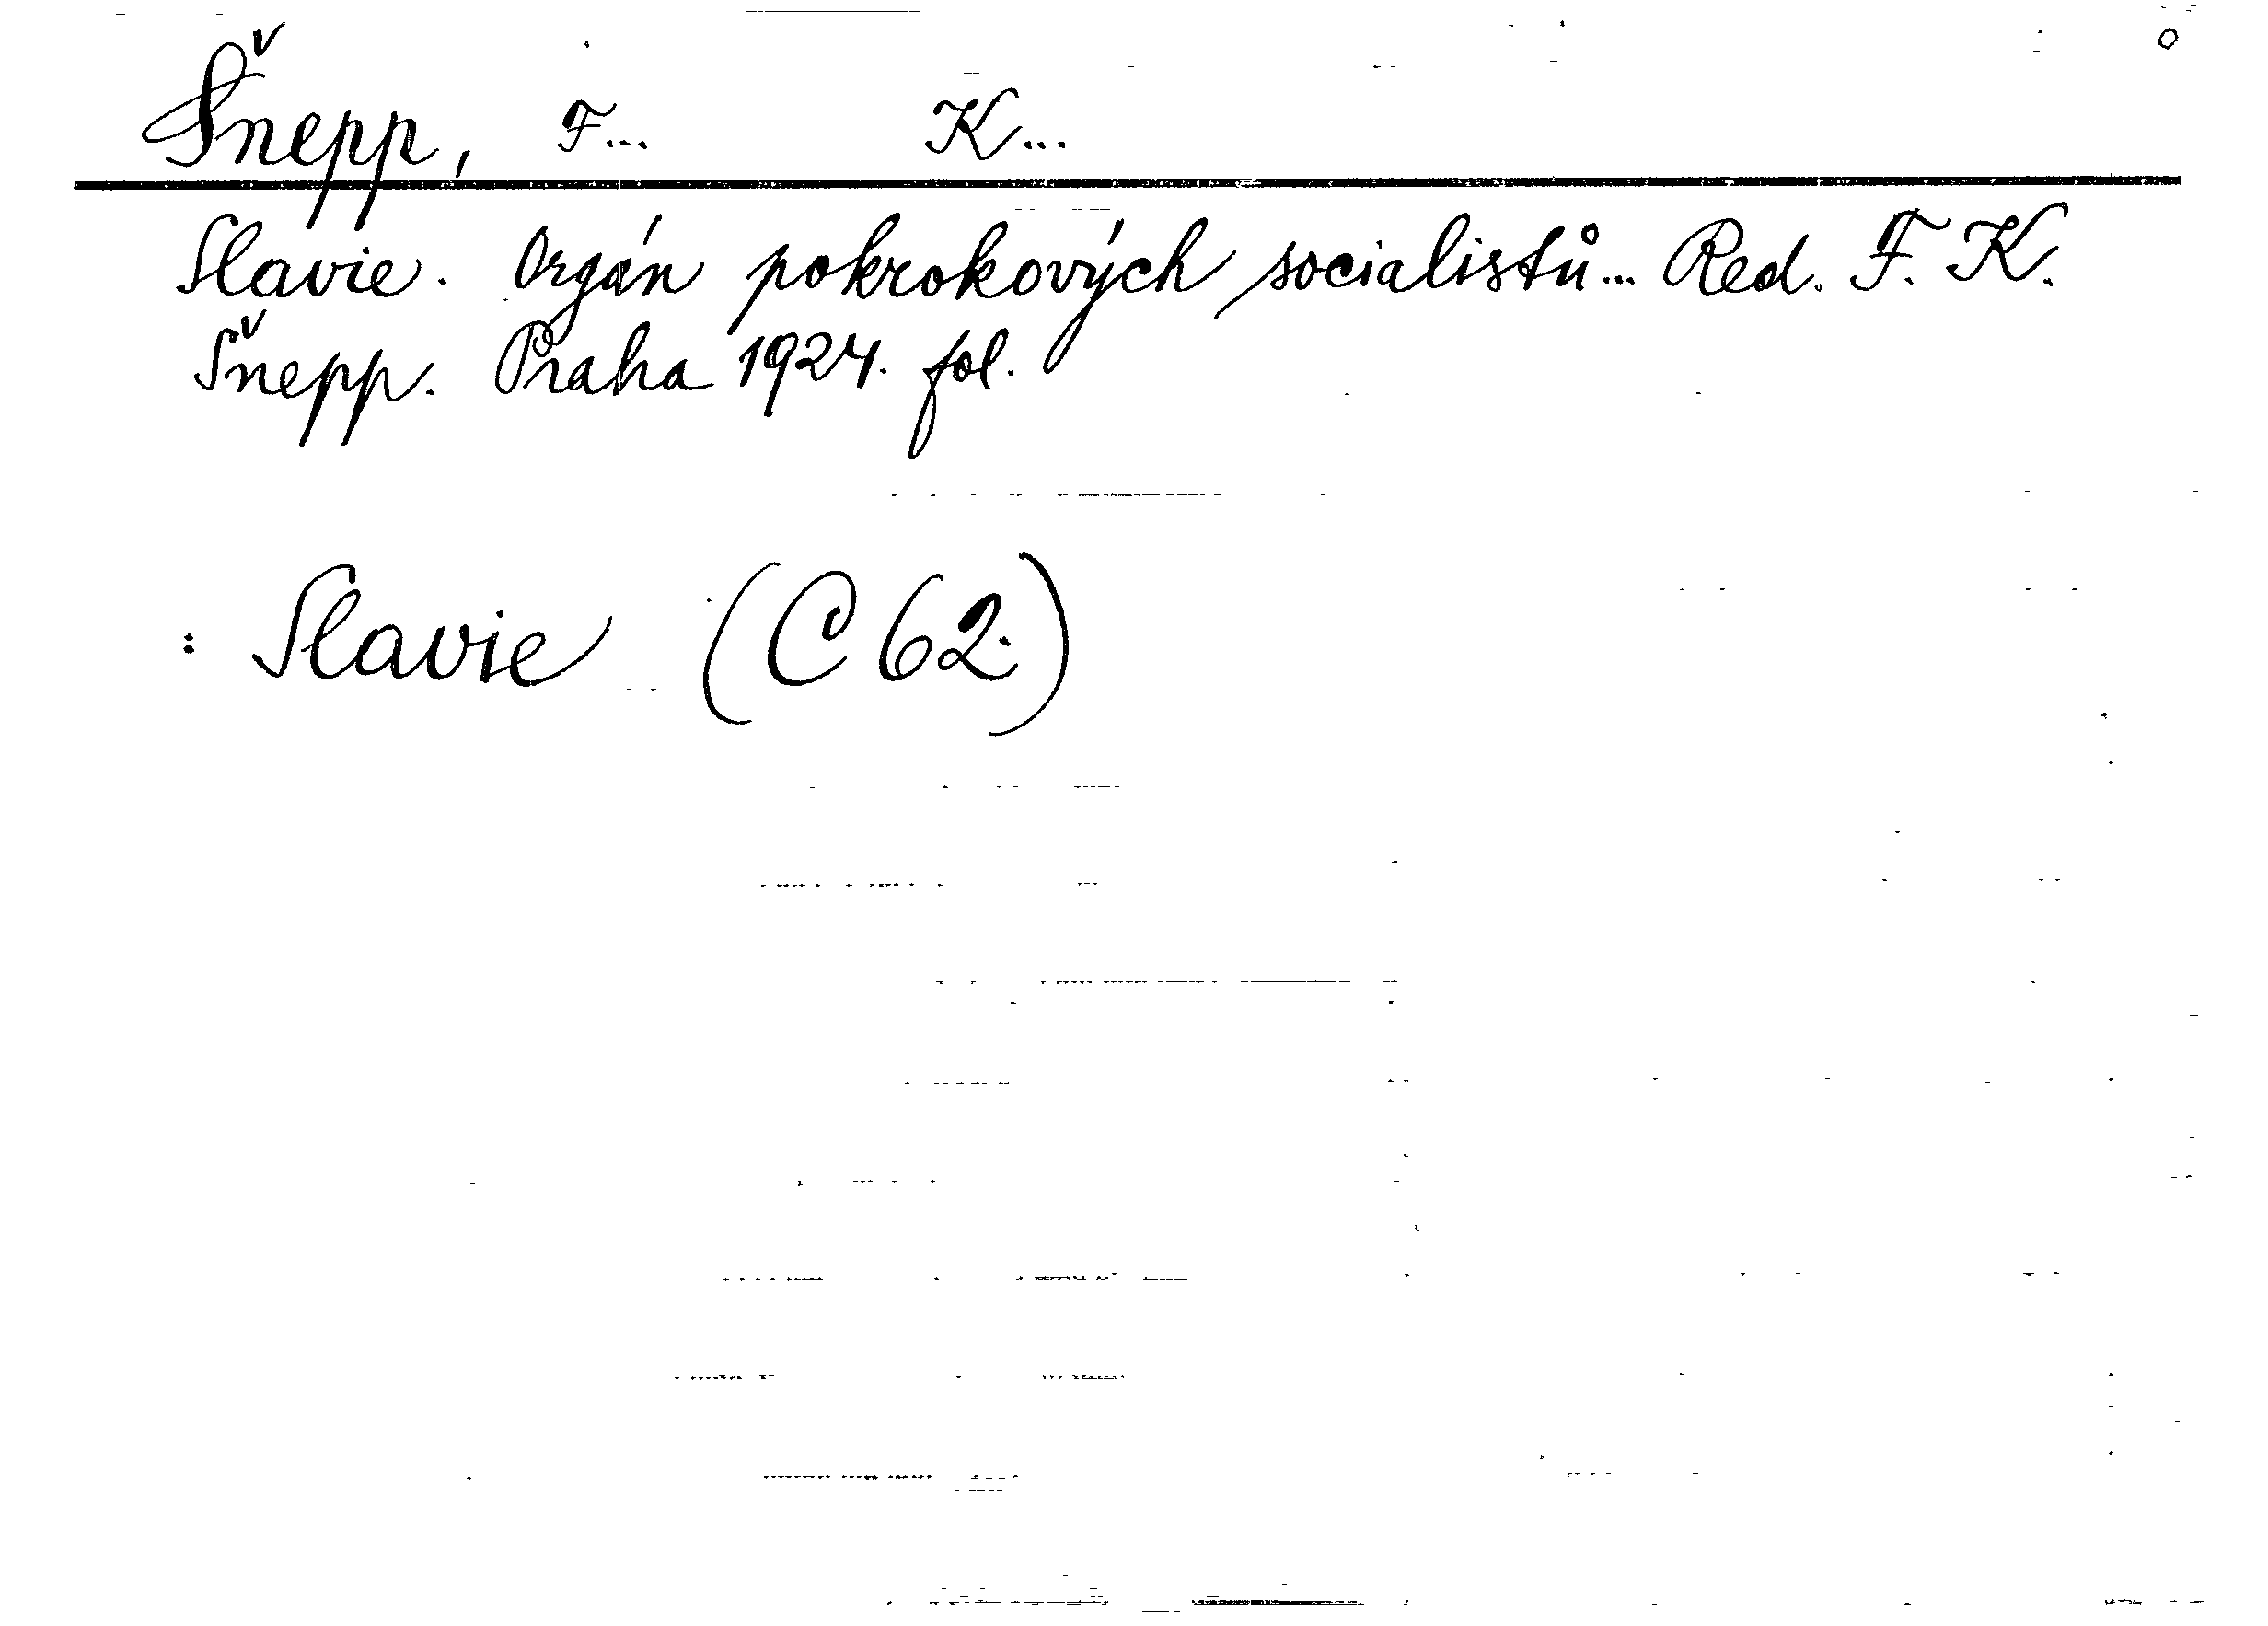 Šnepp, F... K...
Slavie. Orgán pokrokových socialistů... Red. F. K.
Šnepp. Praha 1924. fol.
: Slavie (C 62)